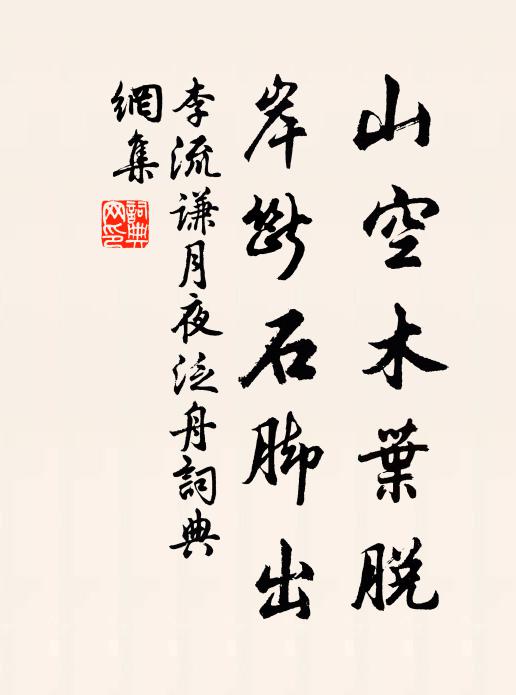 山空木葉脫
岸斷石脚出
李流謙月夜泛舟詞典
網集
詞典網印